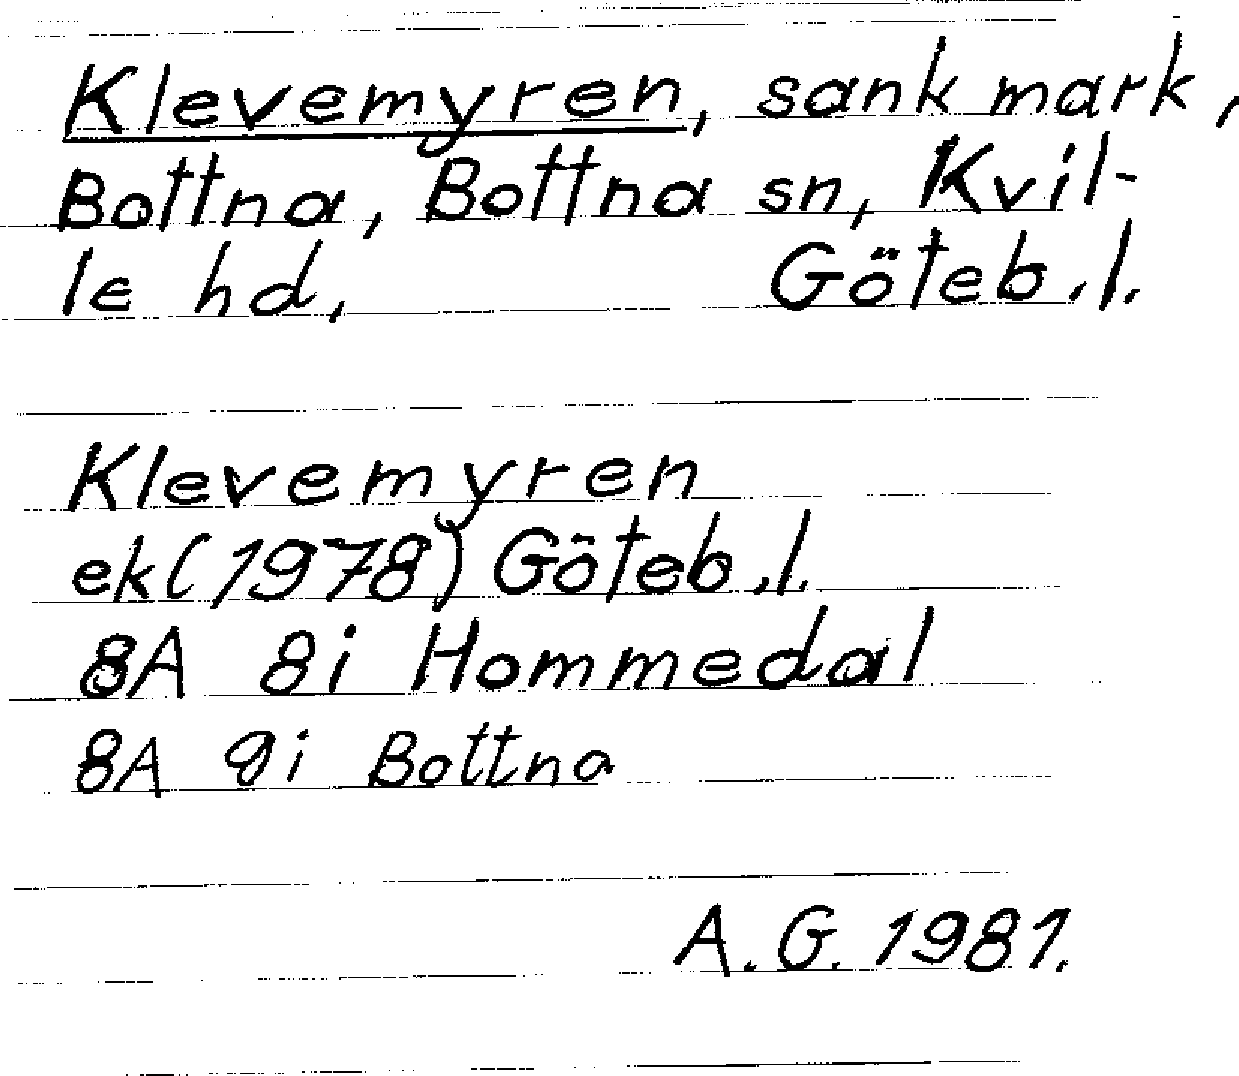 Klevemyren, sank mark,
Bottna, Bottna sn, Kvil-
le hd, Göteb.l.
Klevemyren
ek(1978) Göteb.l.
8A 8i Hommedal
8A 9i Bottna
A.G. 1981.